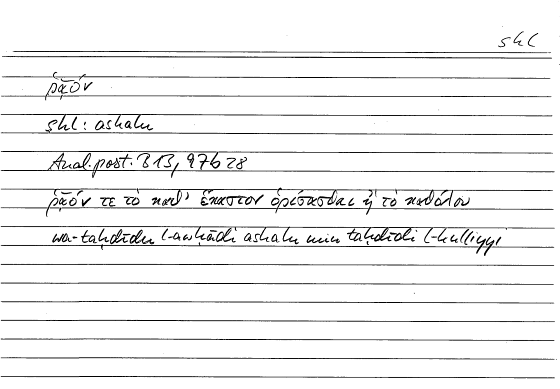 shl
ῥᾷόν
shl: ashalu
Anal. post. B 13, 97b28
ῥᾷόν τε τὸ καθ' ἕκαστον ὁρίσασθαι ἢ τὸ καθόλου
wa-taḥdīdu l-awḥādi ashalu min taḥdīdi l-kulliyyi